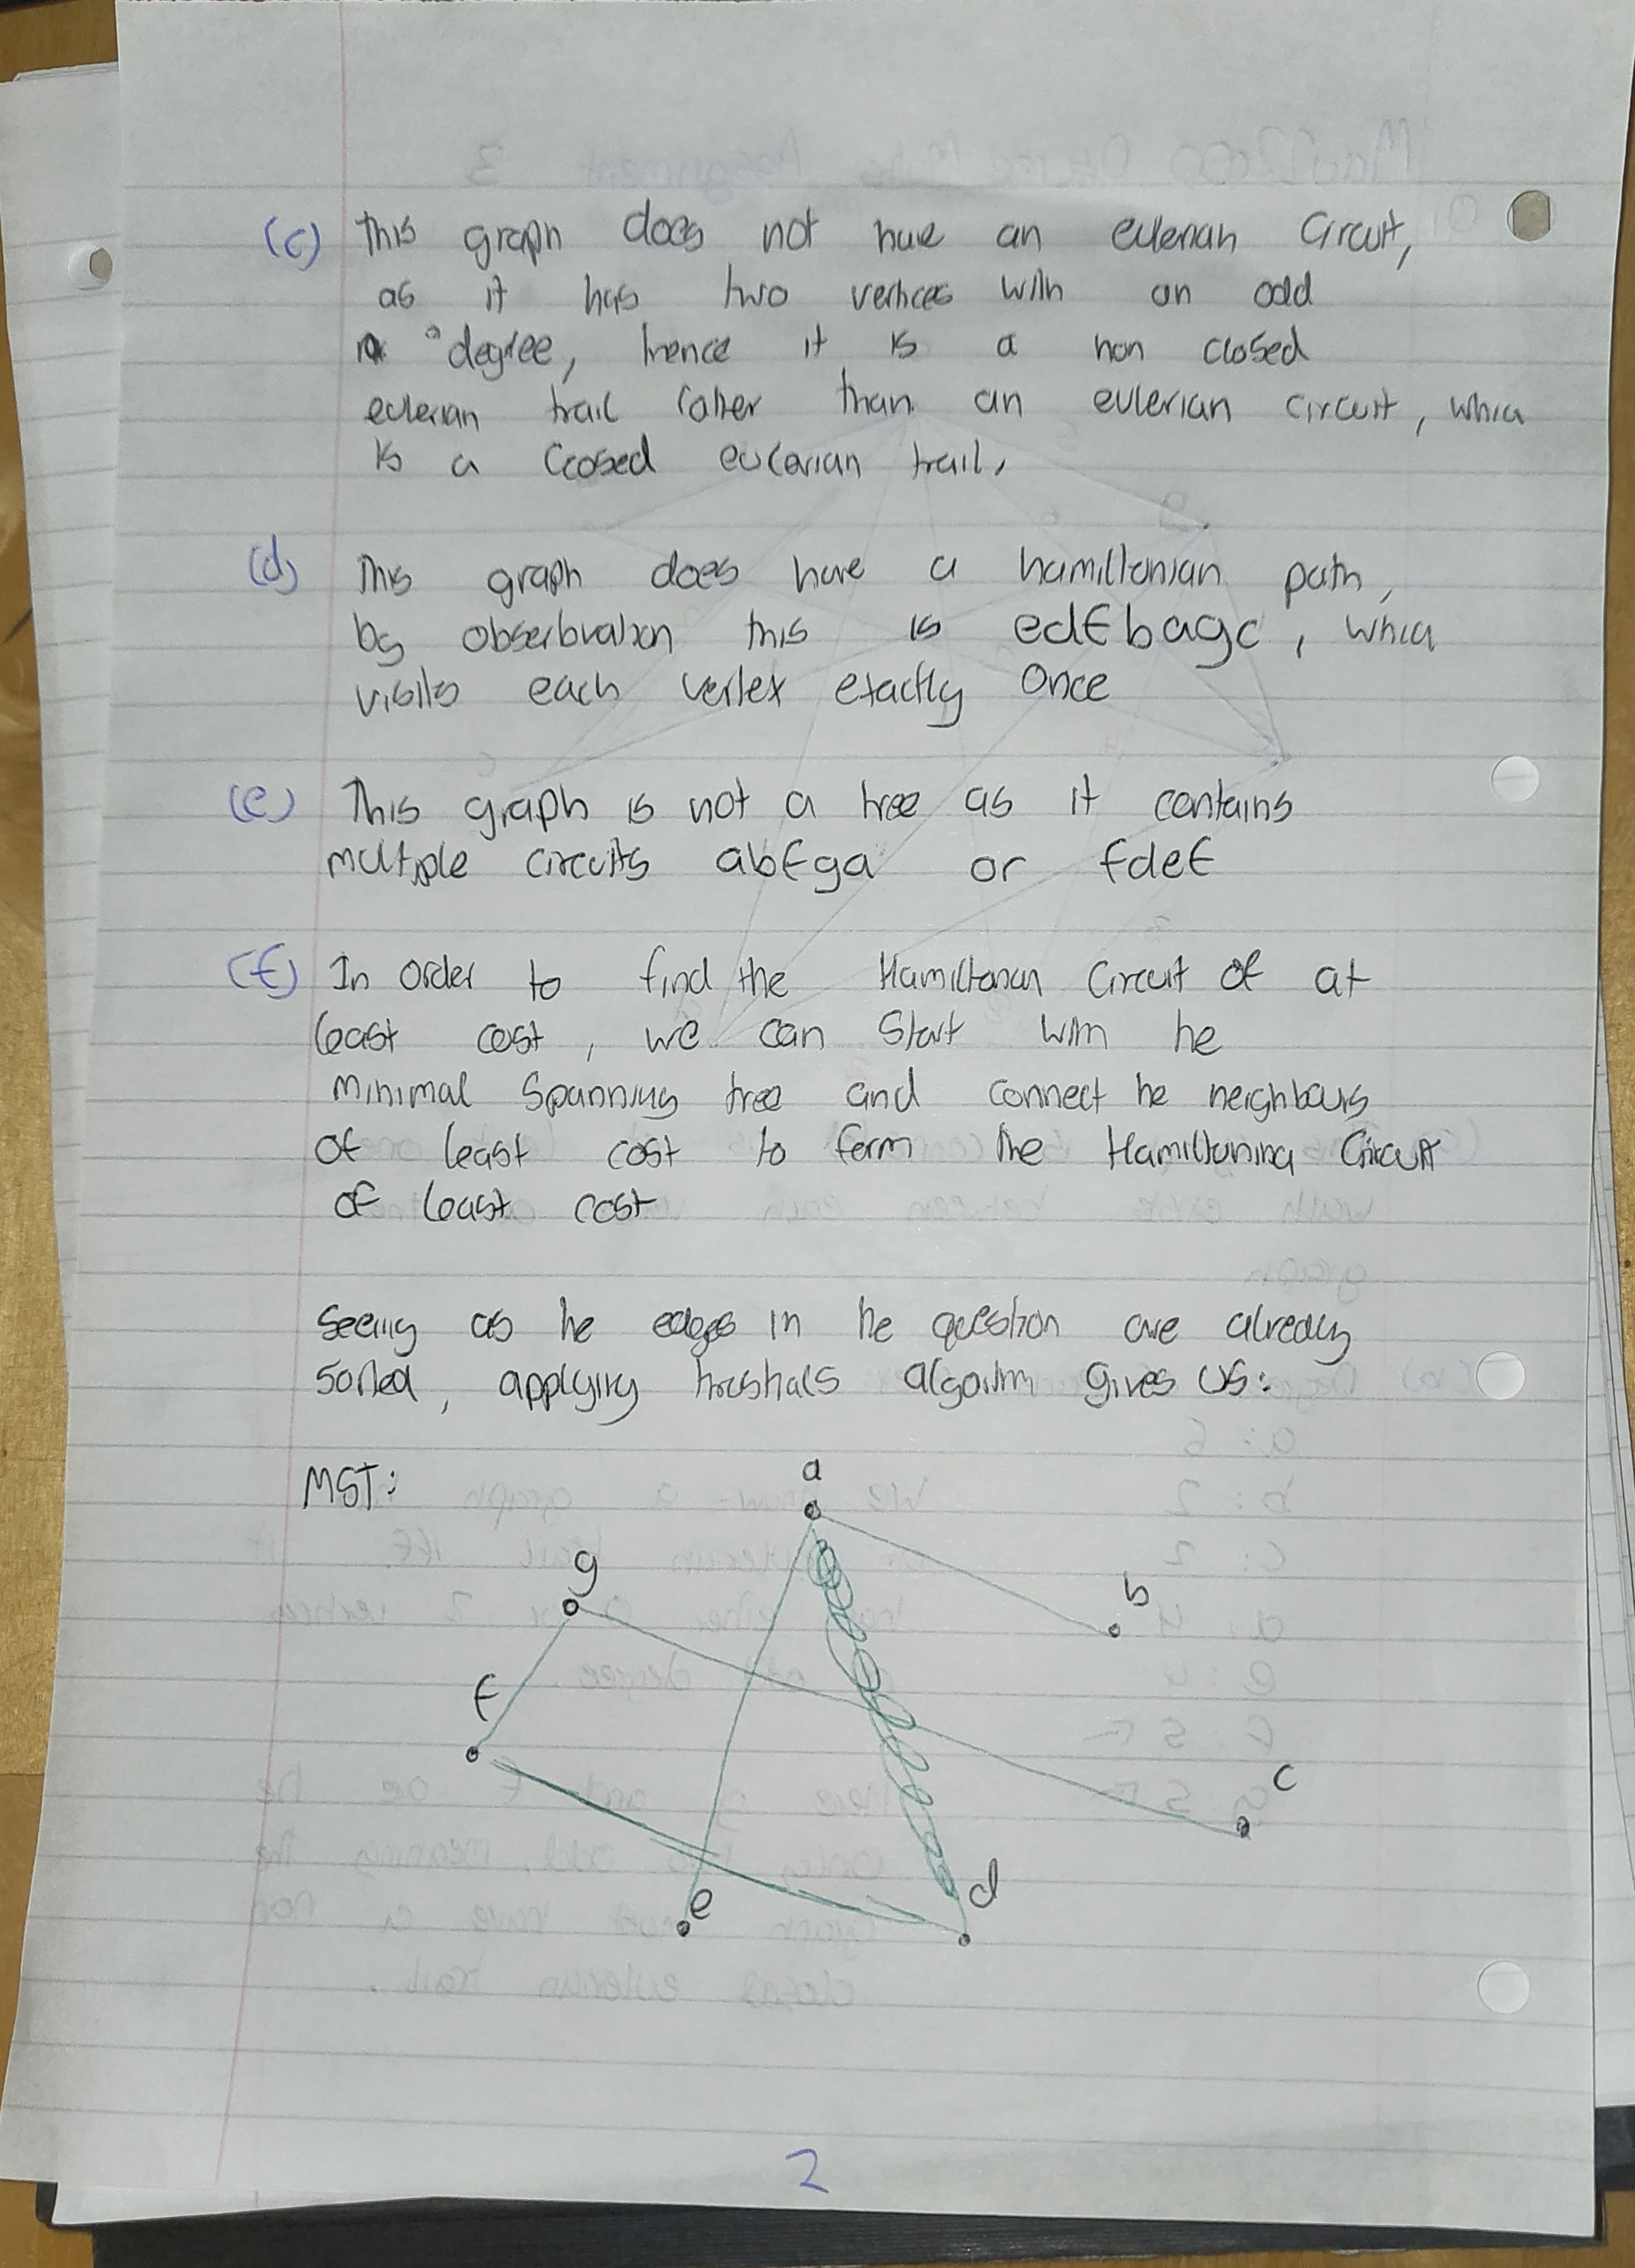 (c) This graph does not have an eulerian circuit,
as it has two vertices with an odd
degree, hence it is a non closed
eulerian trail rather than an eulerian circuit, which
is a closed eulerian trail.
(d) This graph does have a hamiltonian path,
by obserbvation this is edfbagc, which
visits each vertex exactly once
(e) This graph is not a tree as it contains
multiple circuits abfga or fdef
(f) In order to find the Hamiltonan Circuit of at
least cost, we can start with he
minimal spanning tree and connect he neighbours
of least cost to form the Hamiltoning Circuit
of least cost
Seeing as he edges in he question are already
sorted, applying kruskals algorithm gives us:
MST:
a
g
b
f
c
e
d
2